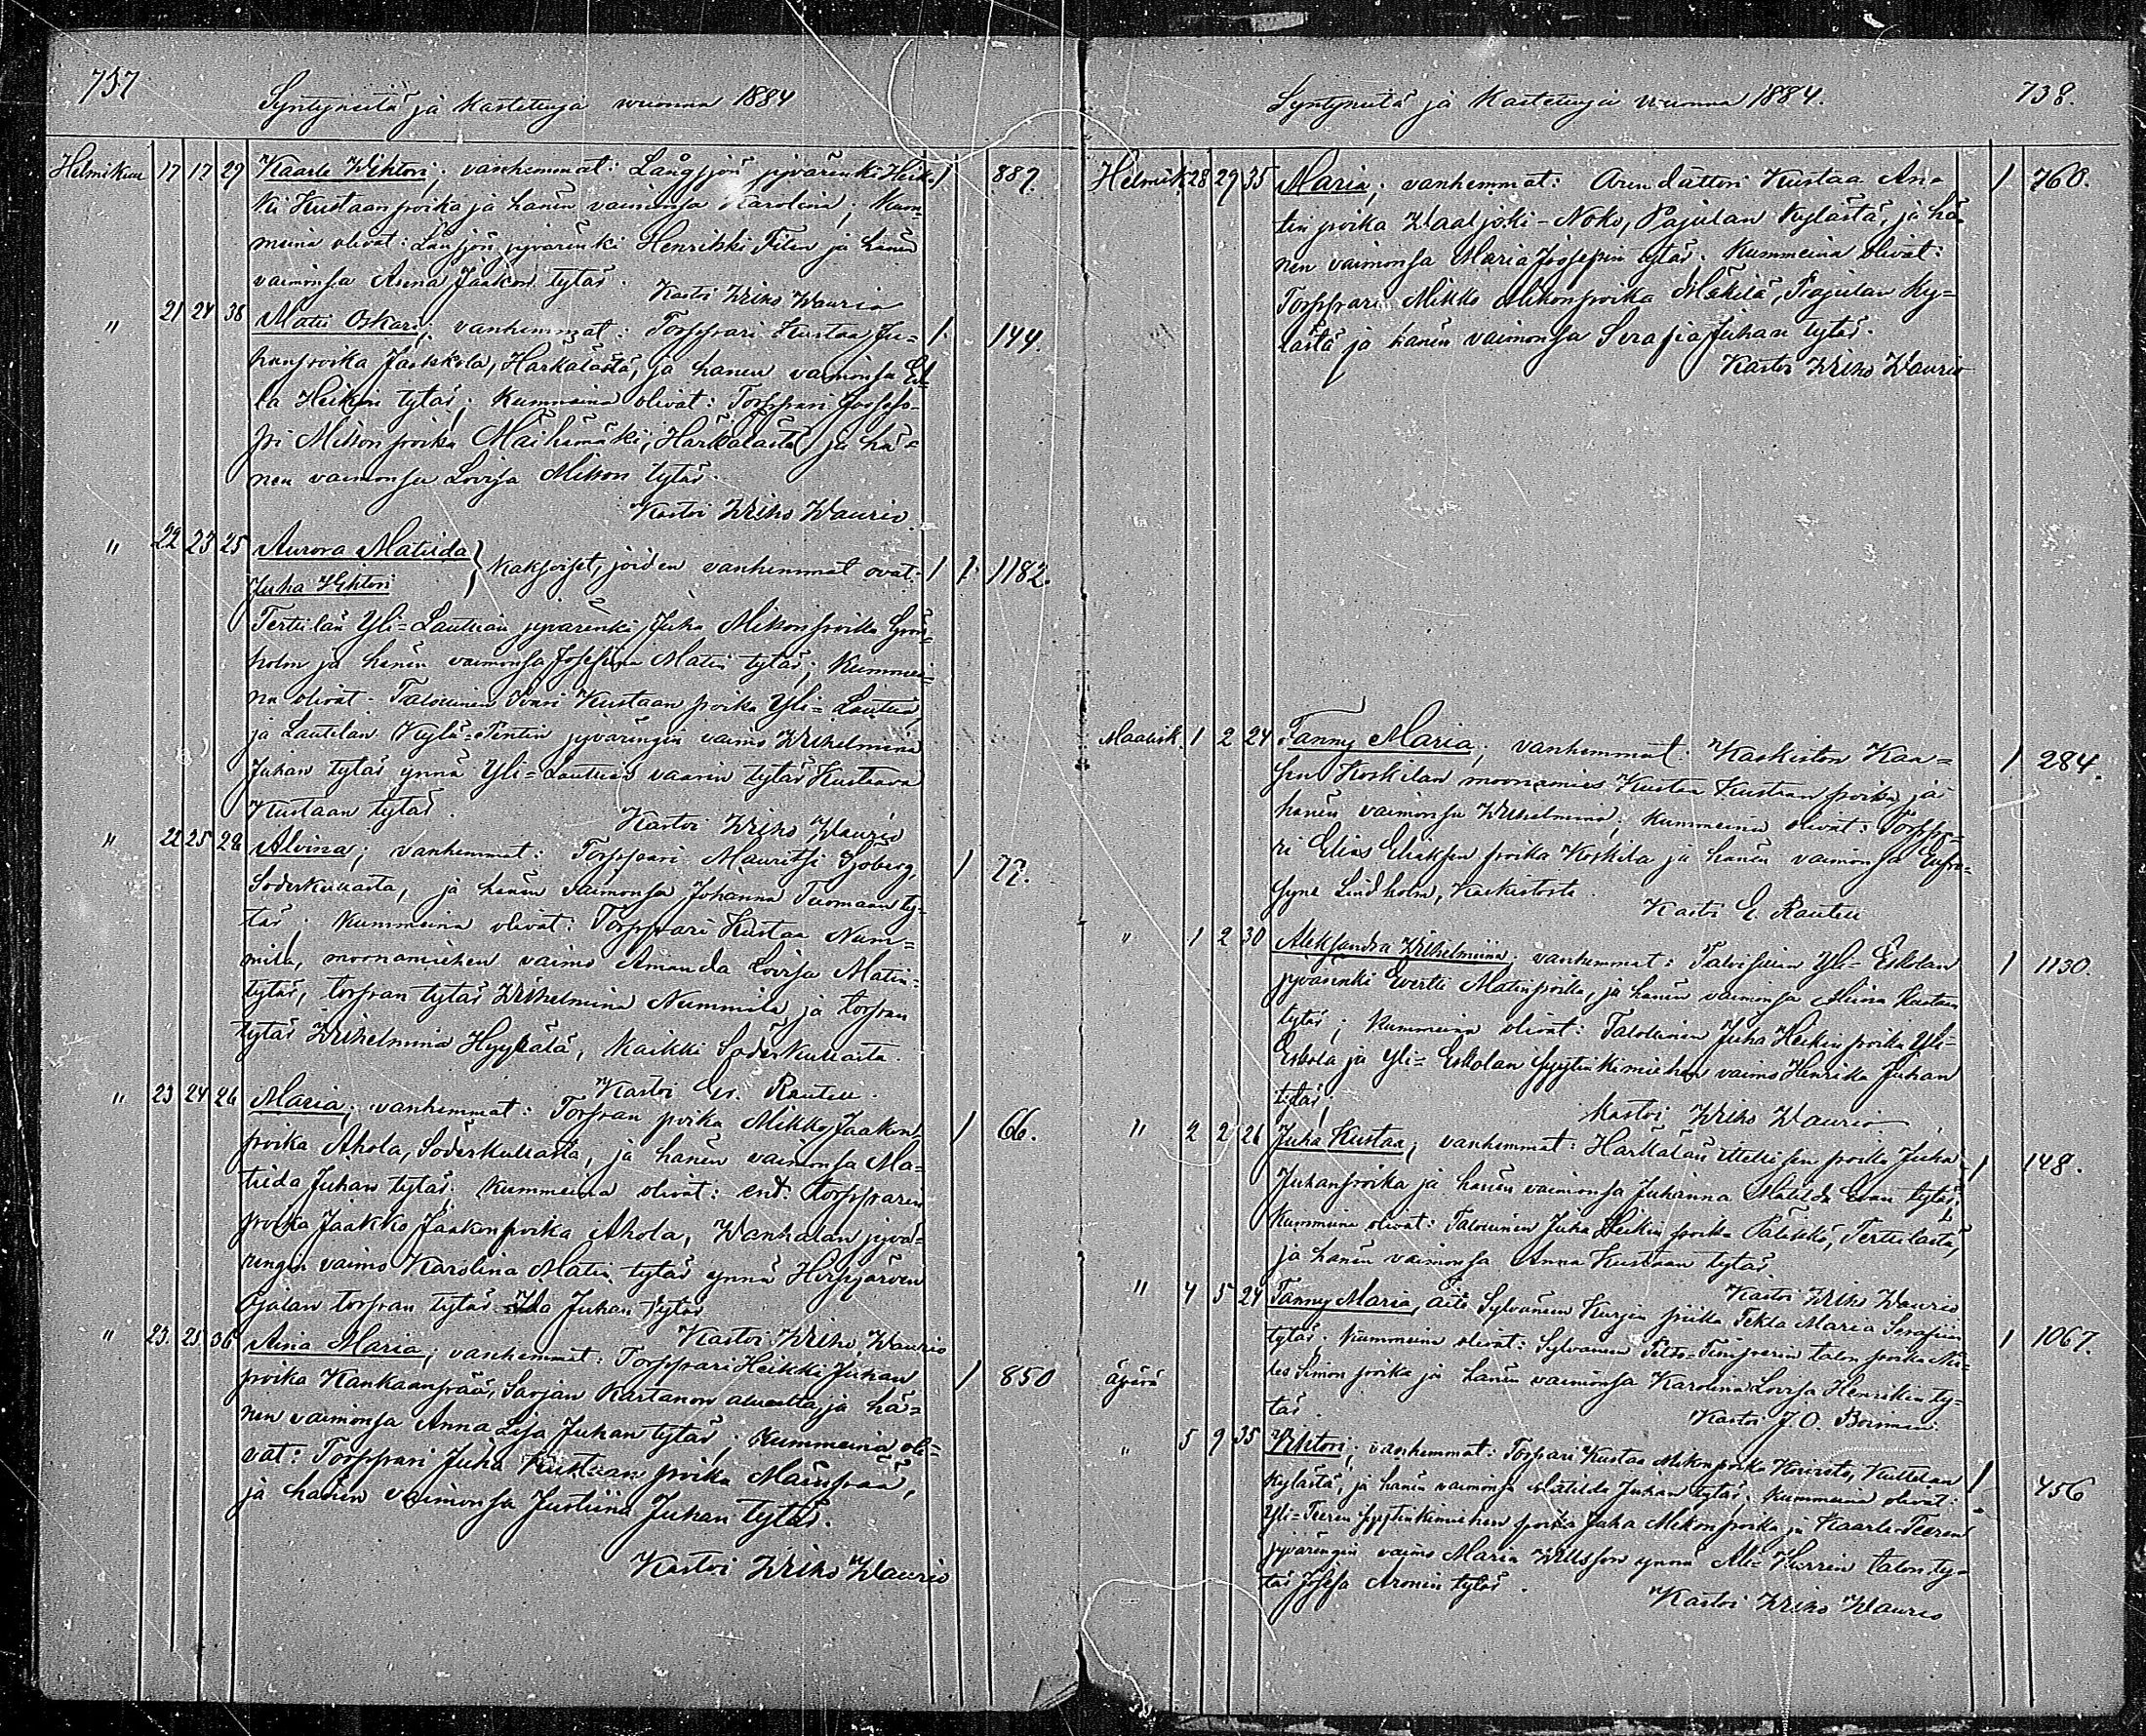 737
Syntyneitä ja kastetuja vuonna 1884
Helmikuu 17 17 29 Kaarle Wihtori; vanhemmat: Långsjön pyvärenki Heik- 1 887.
ki Kustaan poika ja hänen vaimonsa Karolina; Kum-
meina olivat: Lånsjön pyvärenki Henrikki Filin ja hänen
vaimonsa Anna Jaakon tytär. Kastoi Wilho Waurio
" 21 24 38 Matti Oskari; vanhemmat: Torppari Kustaa Ju- 1. 144.
hanpoika Jaakkola, Härkälästä, ja hänen vaimonsa Ed-
la Heikin tytär; Kummeina olivat: Torppari Joosep-
pi Mikon poika Mäihämäki, Härkälästä, ja hä-
nen vaimonsa Lovisa Mikon tytär.
Kastoi Wilho Waurio
" 22 23 25 Aurora Matilda
Juha Wihtori } Kaksoiset, joiden vanhemmat ovat: 1 1. 1182.
Terttilän Yli-Lauttian pyvärenki Juha Mikon poika Grön-
holm ja hänen vaimonsa Josefiina Matin tytär; Kummei-
na olivat: Talollinen Iivari Kustaan poika Yli-Lauttia,
ja Lautelan Kylä-Pentin pyväringin vaimo Wilhelmina
Juhan tytär ynnä Yli-Lauttian vaarin tytär Kustaava
Kustaan tytär. Kastoi Wilho Waurio
" 22 25 28 Alvina; vanhemmat: Torppari Mauritsi Sjöberg, 1 77.
Söderkullasta, ja hänen vaimonsa Johanna Tuomaan ty-
tär; Kummeina olivat: Torppari Kustaa Num-
mila, moonamiehen vaimo Amanda Lovisa Matin-
tytär, torpan tytär Wilhelmina Nummila, ja torpan
tytär Wilhelmina Hyypälä, kaikki Söderkullasta.
Kastoi Er. Rautell.
" 23 24 26 Maria; vanhemmat: Torpan poika Mikko Jaakon 1 66.
poika Ahola, Söderkullasta, ja hänen vaimonsa Ma-
tilda Juhan tytär; Kummeina olivat: ent. torpparin
poika Jaakko Jaakonpoika Ahola, Wanhalan pyvä-
ringin vaimo Karolina Matin tytär ynnä Hirsjärven
Ojalan torpan tytär Ida Juhan tytär
Kastoi Wilho Waurio
" 23. 25. 36 Aina Maria; vanhemmat: Torppari Heikki Juhan 1 850
poika Kankaanpää, Saojan Kartanon alueelta, ja hä-
nen vaimonsa Anna Lisa Juhan tytär; Kummeina oli-
vat: Torppari Juha Kustaan poika Mäenpää,
ja hänen vaimonsa Justiina Juhan tytär.
Kastoi Wilho Waurio
Syntyneitä ja kastetuja vuonna 1884. 738.
Helmik. 28 29 35 Maria; vanhemmat: Arendättori Kustaa An- 1 760.
tin poika Waaljoki-Noko, Pajulan Kylästä, ja hä-
nen vaimonsa Maria Joosepin tytär. Kummeina olivat:
Torppari Mikko Mikonpoika Mäkelä, Pajulan ky-
lästä ja hänen vaimonsa Serafia Juhan tytär.
Kastoi Wilho Waurio
Maalisk. 1 2 24 Fanny Maria; vanhemmat: Kaskiston Kaa- 1 284.
Koskilan moonamies Kustaa Kustaan poika ja
hänen vaimonsa Wilhelmina; kummeina olivat: Torppa-
ri Elias Eliaksen poika Koskila ja hänen vaimonsa Eufro-
syne Lindholm, Kaskistosta.
Kastoi E. Rautell
" 1 2 30 Aleksandra Wilhelmina; vanhemmat: Talpian Yli-Eskolan 1 1130.
pyvärenki Evertti Matinpoika, ja hänen vaimonsa Miina Kustaan
tytär; Kummeina olivat: Talollinen Juha Heikin poika Yli-
Eskola ja Yli-Eskolan syytinkimiehen vaimo Henrika Juhan
tytär; Kastoi Wilho Waurio
" 2 2 26 Juha Kustaa; vanhemmat: Härkälän itsellisen poika Juha 1 148.
Juhanpoika ja hänen vaimonsa Juhanna Matilda Eevan tytär;
Kummeina olivat: Talollinen Juha Heikin poika Pälikkö, Terttilästä,
ja hänen vaimonsa Anna Kustaan tytär.
Kastoi Wilho Waurio
" 4 5 24 Fanny Maria, Äiti Sylvänän Kurjen piika Tekla Maria Serafiina 1 1067.
tytär. Kummeina olivat: Sylvänän Pelto-Simperin talon poika
Simon poika ja hänen vaimonsa Karolina Lovisa Henrikin ty-
äpärä tär.
Kastoi J. O. Bonsman.
" 5 9 35 Wihtori; vanhemmat: Torppari Kustaa Mikon poika Koivisto, Kultelan 1 456
kylästä, ja hänen vaimonsa Matilda Juhan tytär. Kummeina olivat:
Yli-Teeren syytinkimiehen poika Juha Mikonpoika ja Kaarle-Teeren
pyväringin vaimo Maria Willsson ynnä Ali-Hurrin talon ty-
tär Josefa Aronin tytär.
Kastoi Wilho Waurio